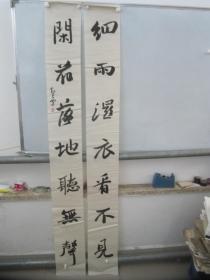 細雨濕衣看不見
閑花落地聽無聲